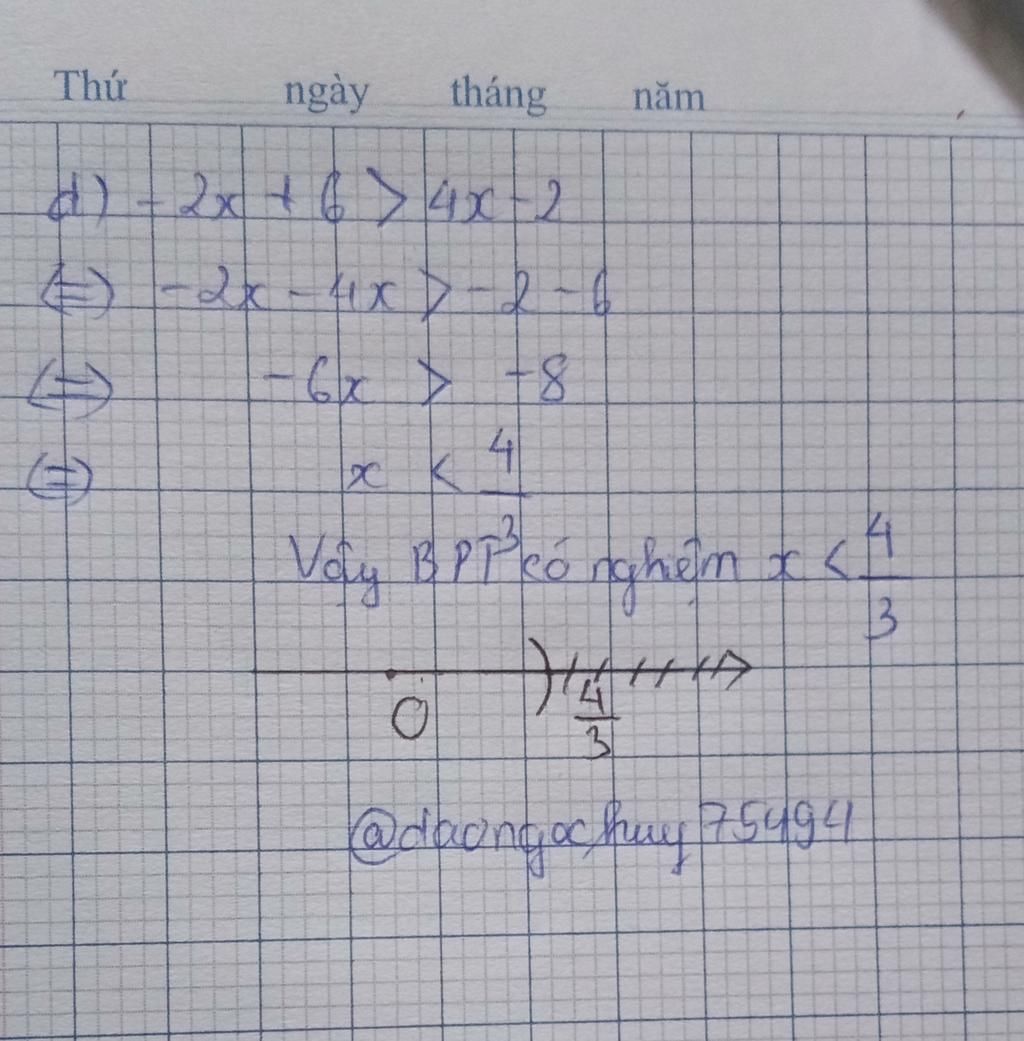 Thứ ngày tháng năm
d) -2x + 6 > 4x - 2
<=> -2x - 4x > -2 - 6
<=> -6x > -8
<=> x < 4/3
Vậy BPT có nghiệm x < 4/3
0 4/3
@daongochuy75494